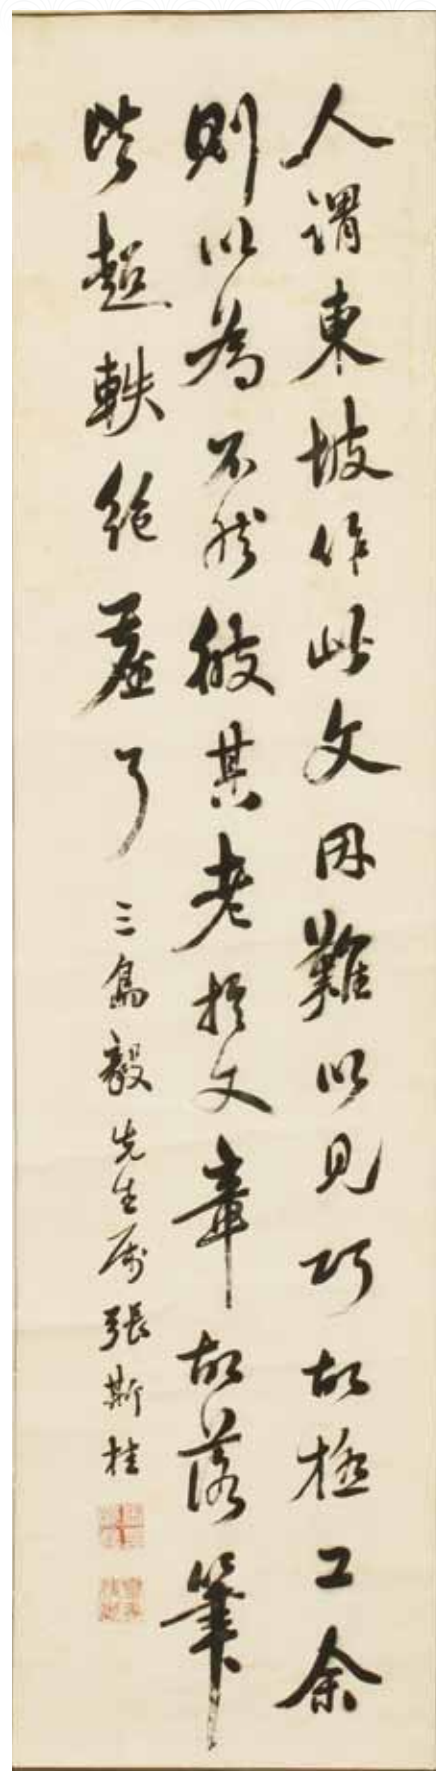 人謂東坡作此文因難以見巧故極工余
則以為不然彼其老於文章故落筆
皆超軼絕塵了 三島毅先生属 張斯桂